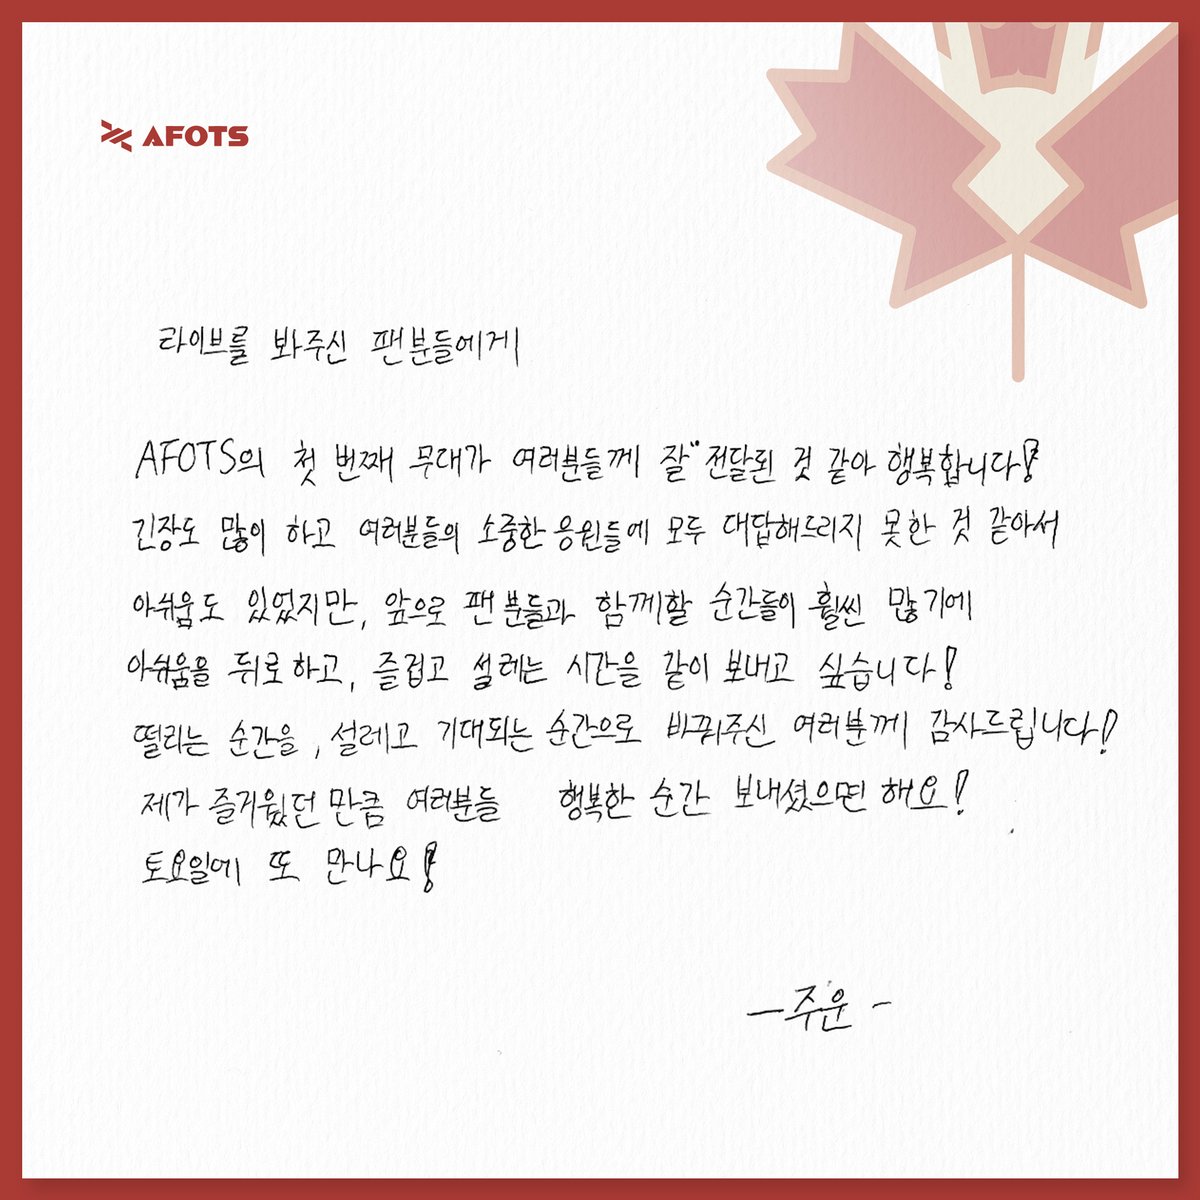 AFOTS
라이브를 봐주신 팬분들에게
AFOTS의 첫 번째 무대가 여러분들께 잘" 전달된 것 같아 행복합니다!
긴장도 많이 하고 여러분들의 소중한 응원들에 모두 대답해드리지 못한 것 같아서
아쉬움도 있었지만, 앞으로 팬분들과 함께할 순간들이 훨씬 많기에
아쉬움을 뒤로하고, 즐겁고 설레는 시간을 같이 보내고 싶습니다!
떨리는 순간을, 설레고 기대되는 순간으로 바꿔주신 여러분께 감사드립니다!
제가 즐거웠던 만큼 여러분들 행복한 순간 보내셨으면 해요!
토요일에 또 만나요!
-주운-